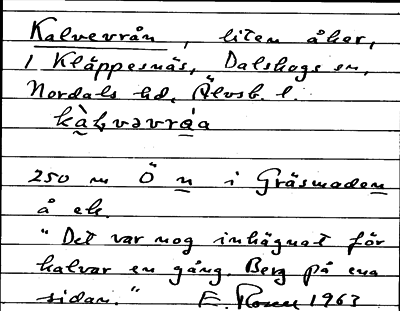 Kalvevrån, liten åker,
i Kläppesnäs, Dalskogs sn,
Nordals hd, Älvsb. l.
250 m Ö n i Gräsmaden
å ek.
"Det var nog inhägnat för
kalvar en gång. Berg på ena
sidan." E. 1963